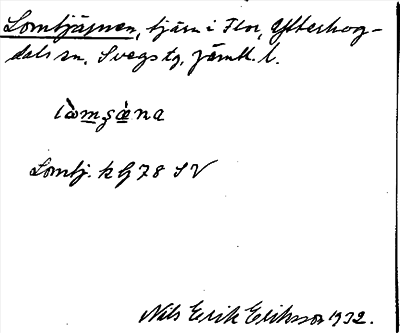 Lomtjärnen, tjärn i Flor, Ytterhog-
dals sn, Svegs tg, Jämtl. l.
lòmşæ̀na
Lomtj. k G 78 SV
Nils Erik Eriksson 1932.